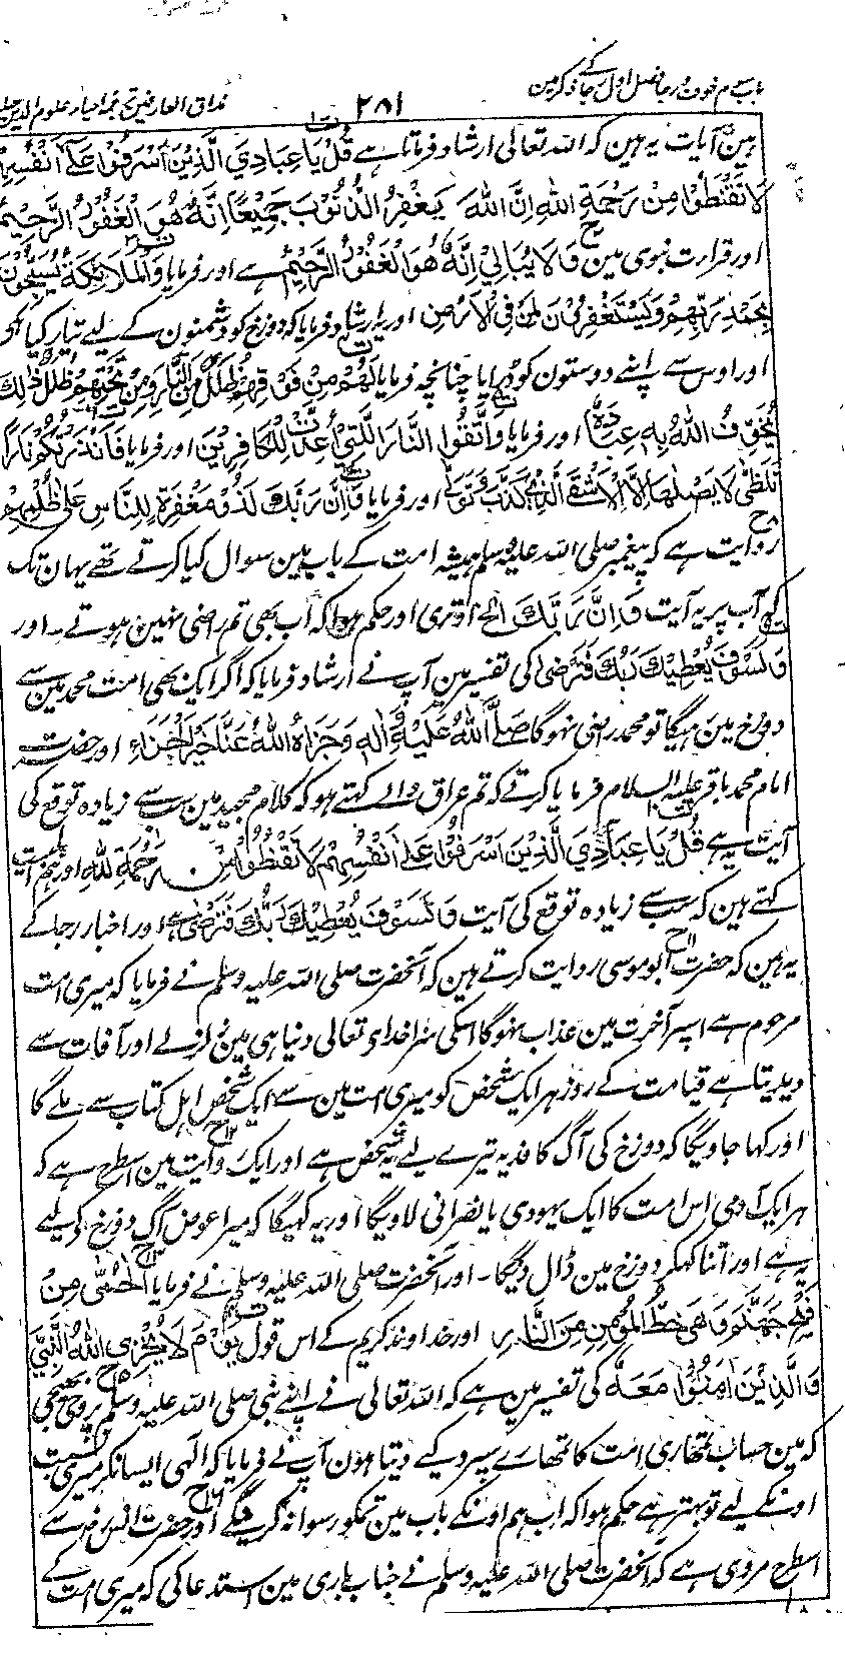 باب سوم خوف ورجا فصل اول رجا کے ذکر مین
۲۸۱
مذاق العارفین ترجمہ احیاء علوم الدین جلد
ہین آیات یہ ہین کہ اللہ تعالی ارشاد فرماتا ہے قُلْ يَا عِبَادِيَ الَّذِيْنَ اَسْرَفُوْا عَلٰى اَنْفُسِهِمْ
لَا تَقْنَطُوْا مِنْ رَحْمَةِ اللهِ اِنَّ اللهَ يَغْفِرُ الذُّنُوْبَ جَمِيْعًا اِنَّهُ هُوَ الْغَفُوْرُ الرَّحِيْمُ
اور قرارت نبوی مین وَلَا يُبَالِيْ اِنَّهُ هُوَ الْغَفُوْرُ الرَّحِيْمُ ہے اور فرمایا وَالْمَلَائِكَةُ يُسَبِّحُوْنَ
بِحَمْدِ رَبِّهِمْ وَيَسْتَغْفِرُوْنَ لِمَنْ فِى الْاَرْضِ اور یہ ارشاد فرمایا کہ دوزخ کو دشمنون کے لیے تیار کیا ہے
اور اوس سے اپنے دوستون کو ڈرایا چنانچہ فرمایا لَهُمْ مِنْ فَوْقِهِمْ ظُلَلٌ مِنَ النَّارِ وَمِنْ تَحْتِهِمْ ظُلَلٌ ذٰلِكَ
يُخَوِّفُ اللهُ بِهٖ عِبَادَهٗ اور فرمایا وَاتَّقُوا النَّارَ الَّتِيْ اُعِدَّتْ لِلْكَافِرِيْنَ اور فرمایا فَاَنْذَرْتُكُمْ نَارًا
تَلَظّٰى لَا يَصْلٰهَا اِلَّا الْاَشْقَى الَّذِيْ كَذَّبَ وَتَوَلّٰى اور فرمایا وَاِنَّ رَبَّكَ لَذُوْ مَغْفِرَةٍ لِلنَّاسِ عَلٰى ظُلْمِهِمْ
روایت ہے کہ پیغمبر صلی اللہ علیہ وسلم ہمیشہ امت کے باب مین سوال کیا کرتے تھے یہان تک
کہ آپ پر یہ آیت وَاِنَّ رَبَّكَ الخ اوتری اور حکم ہوا کہ اب بھی تم راضی نہین ہوتے ۔ اور
وَلَسَوْفَ يُعْطِيْكَ رَبُّكَ فَتَرْضٰى کی تفسیر مین آپ نے ارشاد فرمایا کہ اگر ایک بھی امت محمد مین سے
دوزخ مین رہیگا تو محمد راضی نہوگا صَلَّى اللهُ عَلَيْهِ وَاٰلِهٖ وَجَزَاهُ اللهُ عَنَّا خَيْرَ الْجَزَاءِ اور حضرت
امام محمد باقر علیہ السلام فرمایا کرتے کہ تم عراق والے کہتے ہو کہ کلام مجید مین سب سے زیادہ توقع کی
آیت یہ ہے قُلْ يَا عِبَادِيَ الَّذِيْنَ اَسْرَفُوْا عَلٰى اَنْفُسِهِمْ لَا تَقْنَطُوْا مِنْ رَحْمَةِ اللهِ اور ہم اہلبیت
کہتے ہین کہ سب سے زیادہ توقع کی آیت وَلَسَوْفَ يُعْطِيْكَ رَبُّكَ فَتَرْضٰى ہے اور اخبار رجا کے
یہ ہین کہ حضرت ابو موسی روایت کرتے ہین کہ آنحضرت صلی اللہ علیہ وسلم نے فرمایا کہ میری امت
مرحوم ہے اسپر آخرت مین عذاب نہوگا اسکی سزا خدای تعالی دنیا ہی مین زلزلے اور آفات سے
دیدیتا ہے قیامت کے روز ہر ایک شخص کو میری امت مین سے ایک شخص اہل کتاب سے ملے گا
اور کہا جاویگا کہ دوزخ کی آگ کا فدیہ تیرے لیے یہ شخص ہے اور ایک روایت مین اسطرح ہے کہ
ہر ایک آدمی اس امت کا ایک یہودی یا نصرانی لاویگا اور یہ کہیگا کہ میرا عوض آگ دوزخ کے لیے
یہ ہے اور اتنا کہکر دوزخ مین ڈال دیگا ۔ اور آنحضرت صلی اللہ علیہ وسلم نے فرمایا اَلْحُمّٰى مِنْ
فَيْحِ جَهَنَّمَ وَهِىَ حَظُّ الْمُؤْمِنِ مِنَ النَّارِ اور خداوند کریم کے اس قول يَوْمَ لَا يُخْزِى اللهُ النَّبِىَّ
وَالَّذِيْنَ اٰمَنُوْا مَعَهُ کی تفسیر مین ہے کہ اللہ تعالی نے اپنے نبی صلی اللہ علیہ وسلم پر وحی بھیجی
کہ مین حساب تمھاری امت کا تمھارے سپرد کیے دیتا ہون آپ نے فرمایا کہ الہی ایسا نکر میری نسبت
اونکے لیے تو بہتر ہے حکم ہوا کہ اب ہم اونکے باب مین تمکو رسوا نہ کرینگے اور حضرت انس رض سے
اسطرح مروی ہے کہ آنحضرت صلی اللہ علیہ وسلم نے جناب باری مین استدعا کی کہ میری امت کے